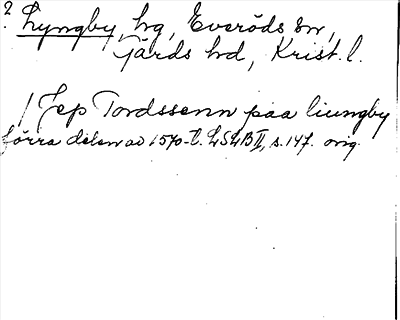 2. Lyngby, hg, Everöds sn,
Järds hd, Krist. l.
/ Jep Tordssenn paa liungby
förra delen av 1570-t. LSLB II, s. 147. orig.